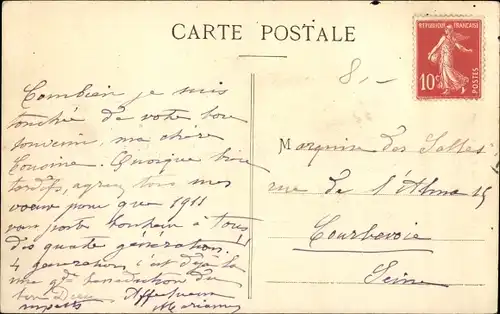 CARTE POSTALE
REPUBLIQUE FRANÇAISE
10c
POSTES
8,-
Combien je suis
touchée de votre bon
souvenir, ma chère
Cousine. Quoique bien
tardifs, agréez tous mes
voeux pour que 1911
vous porte bonheur à tous
dis quatre générations!!
4 générations c'est déjà là
une gde bénédiction du
bon Dieu. Affectueux
respects Marianne
Marquise des Salles
rue de l'Alma 25
Courbevoie
Seine